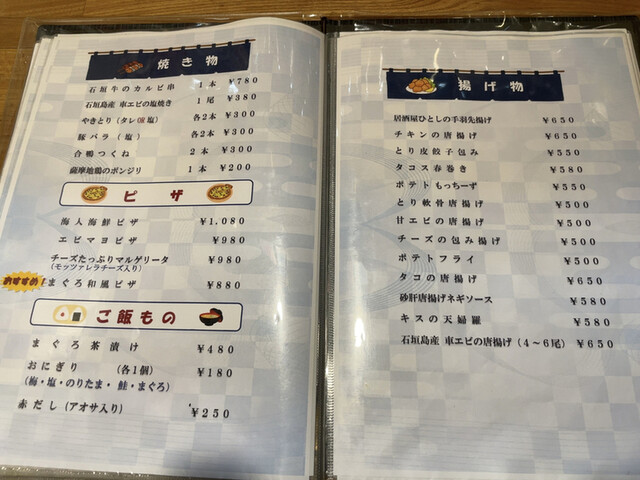 焼き物
石垣牛のカルビ串 1本 ¥780
石垣島産 車エビの塩焼き 1尾 ¥380
やきとり(タレor塩) 各2本 ¥300
豚バラ(塩) 各2本 ¥300
合鴨つくね 2本 ¥300
薩摩地鶏のボンジリ 1本 ¥200
ピザ
海人海鮮ピザ ¥1,080
エビマヨピザ ¥980
チーズたっぷりマルゲリータ ¥980
(モッツァレラチーズ入り)
おすすめ! まぐろ和風ピザ ¥880
ご飯もの
まぐろ茶漬け ¥480
おにぎり (各1個) ¥180
(梅・塩・のりたま・鮭・まぐろ)
赤だし(アオサ入り) ¥250
揚げ物
居酒屋ひとしの手羽先揚げ ¥650
チキンの唐揚げ ¥650
とり皮餃子包み ¥550
タコス春巻き ¥580
ポテトもっちーず ¥550
とり軟骨唐揚げ ¥500
甘エビの唐揚げ ¥500
チーズの包み揚げ ¥500
ポテトフライ ¥500
タコの唐揚げ ¥650
砂肝唐揚げネギソース ¥580
キスの天婦羅 ¥580
石垣島産 車エビの唐揚げ(4～6尾) ¥650